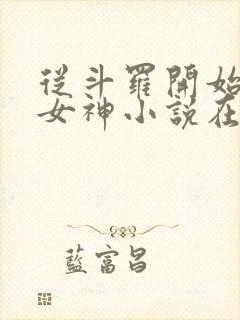 從斗羅開始
女神小說在
藍富昌